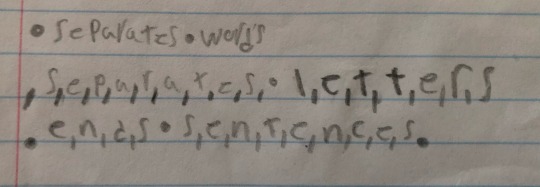 •separates•words
,s,e,p,a,r,a,t,e,s,•l,e,t,t,e,r,s
.e,n,d,s•s,e,n,t,e,n,c,e,s.